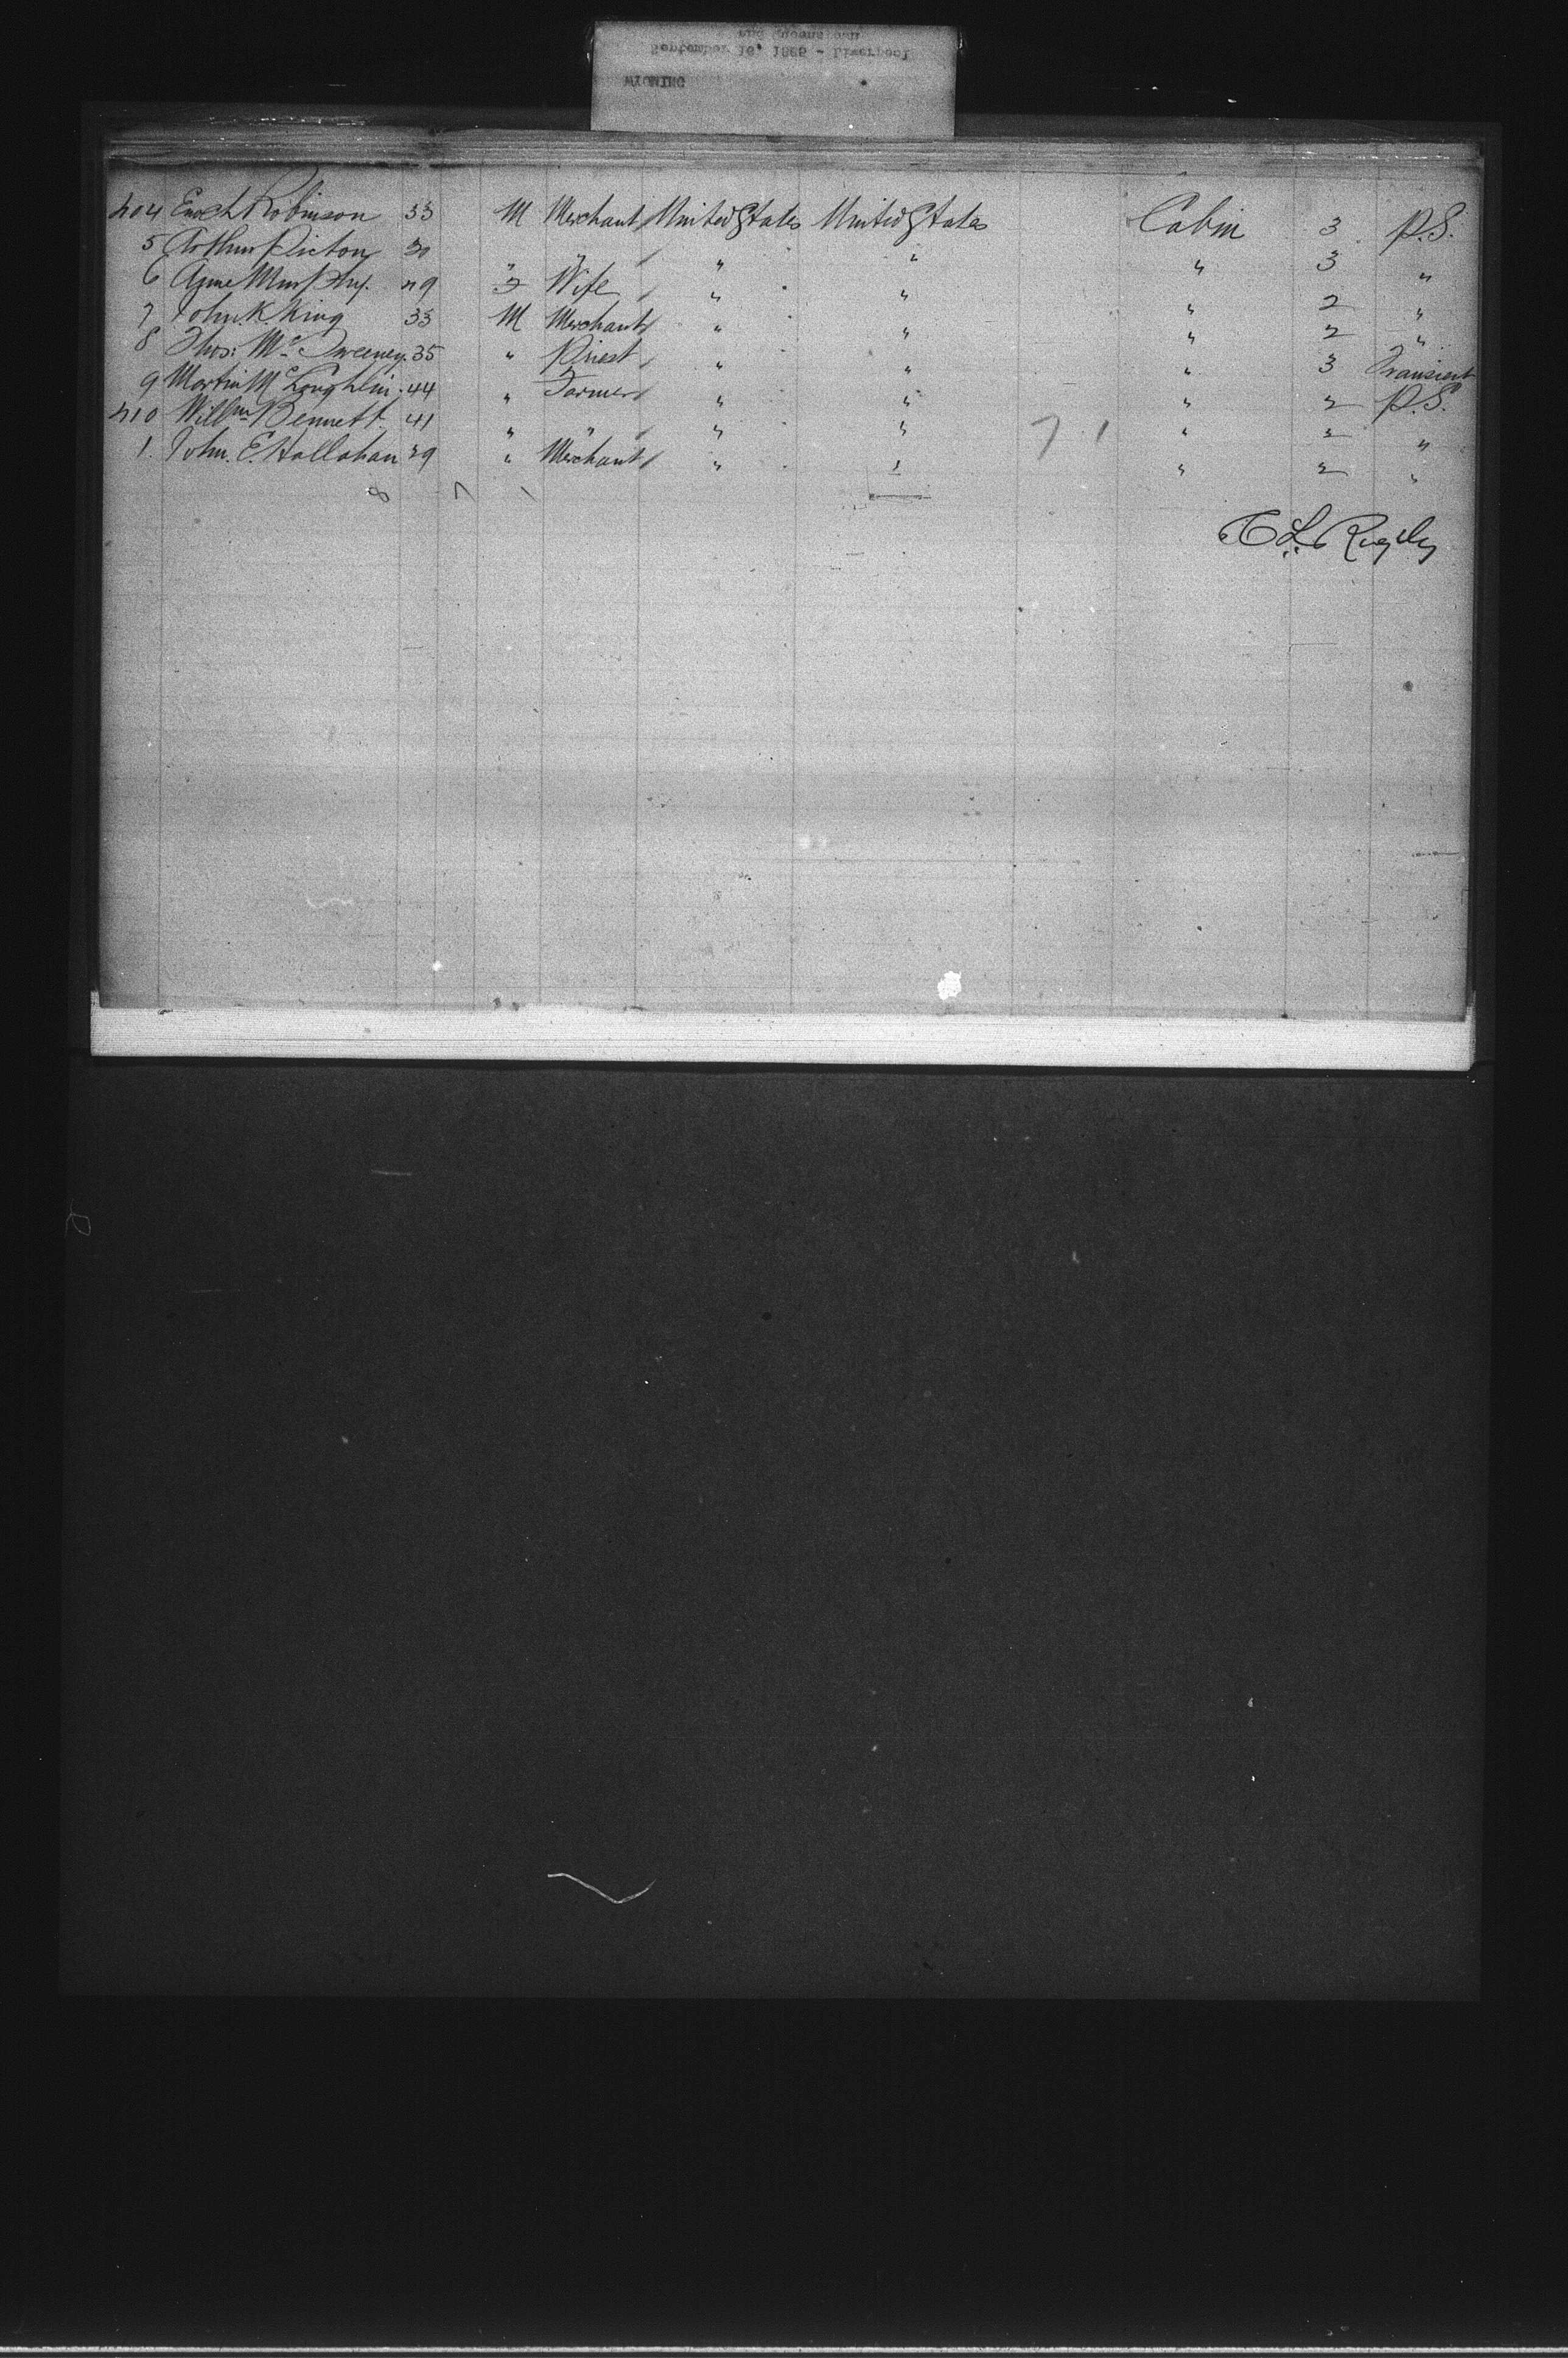 WYOMING
September 16, 1886 - Liverpool
and Queenstown
404 Enoch Robinson 33 M Merchant United States United States Cabin 3 P.S.
5 Arthur Picton 30 " " " " " 3 "
6 Anne Murphy. 49 F Wife " " " 2 "
7 John. K. King 33 M Merchant " " " 2 "
8 Thos: Mc Sweeney. 35 " Priest " " " 3 Transient
9 Martin Mc Loughlin. 44 " Farmer " " " 2 P.S.
410 Willm Bennett. 41 " " " " 7 1 " 2 "
1. John. E. Hallahan 29 " Merchant " " " 2 "
8 7 1